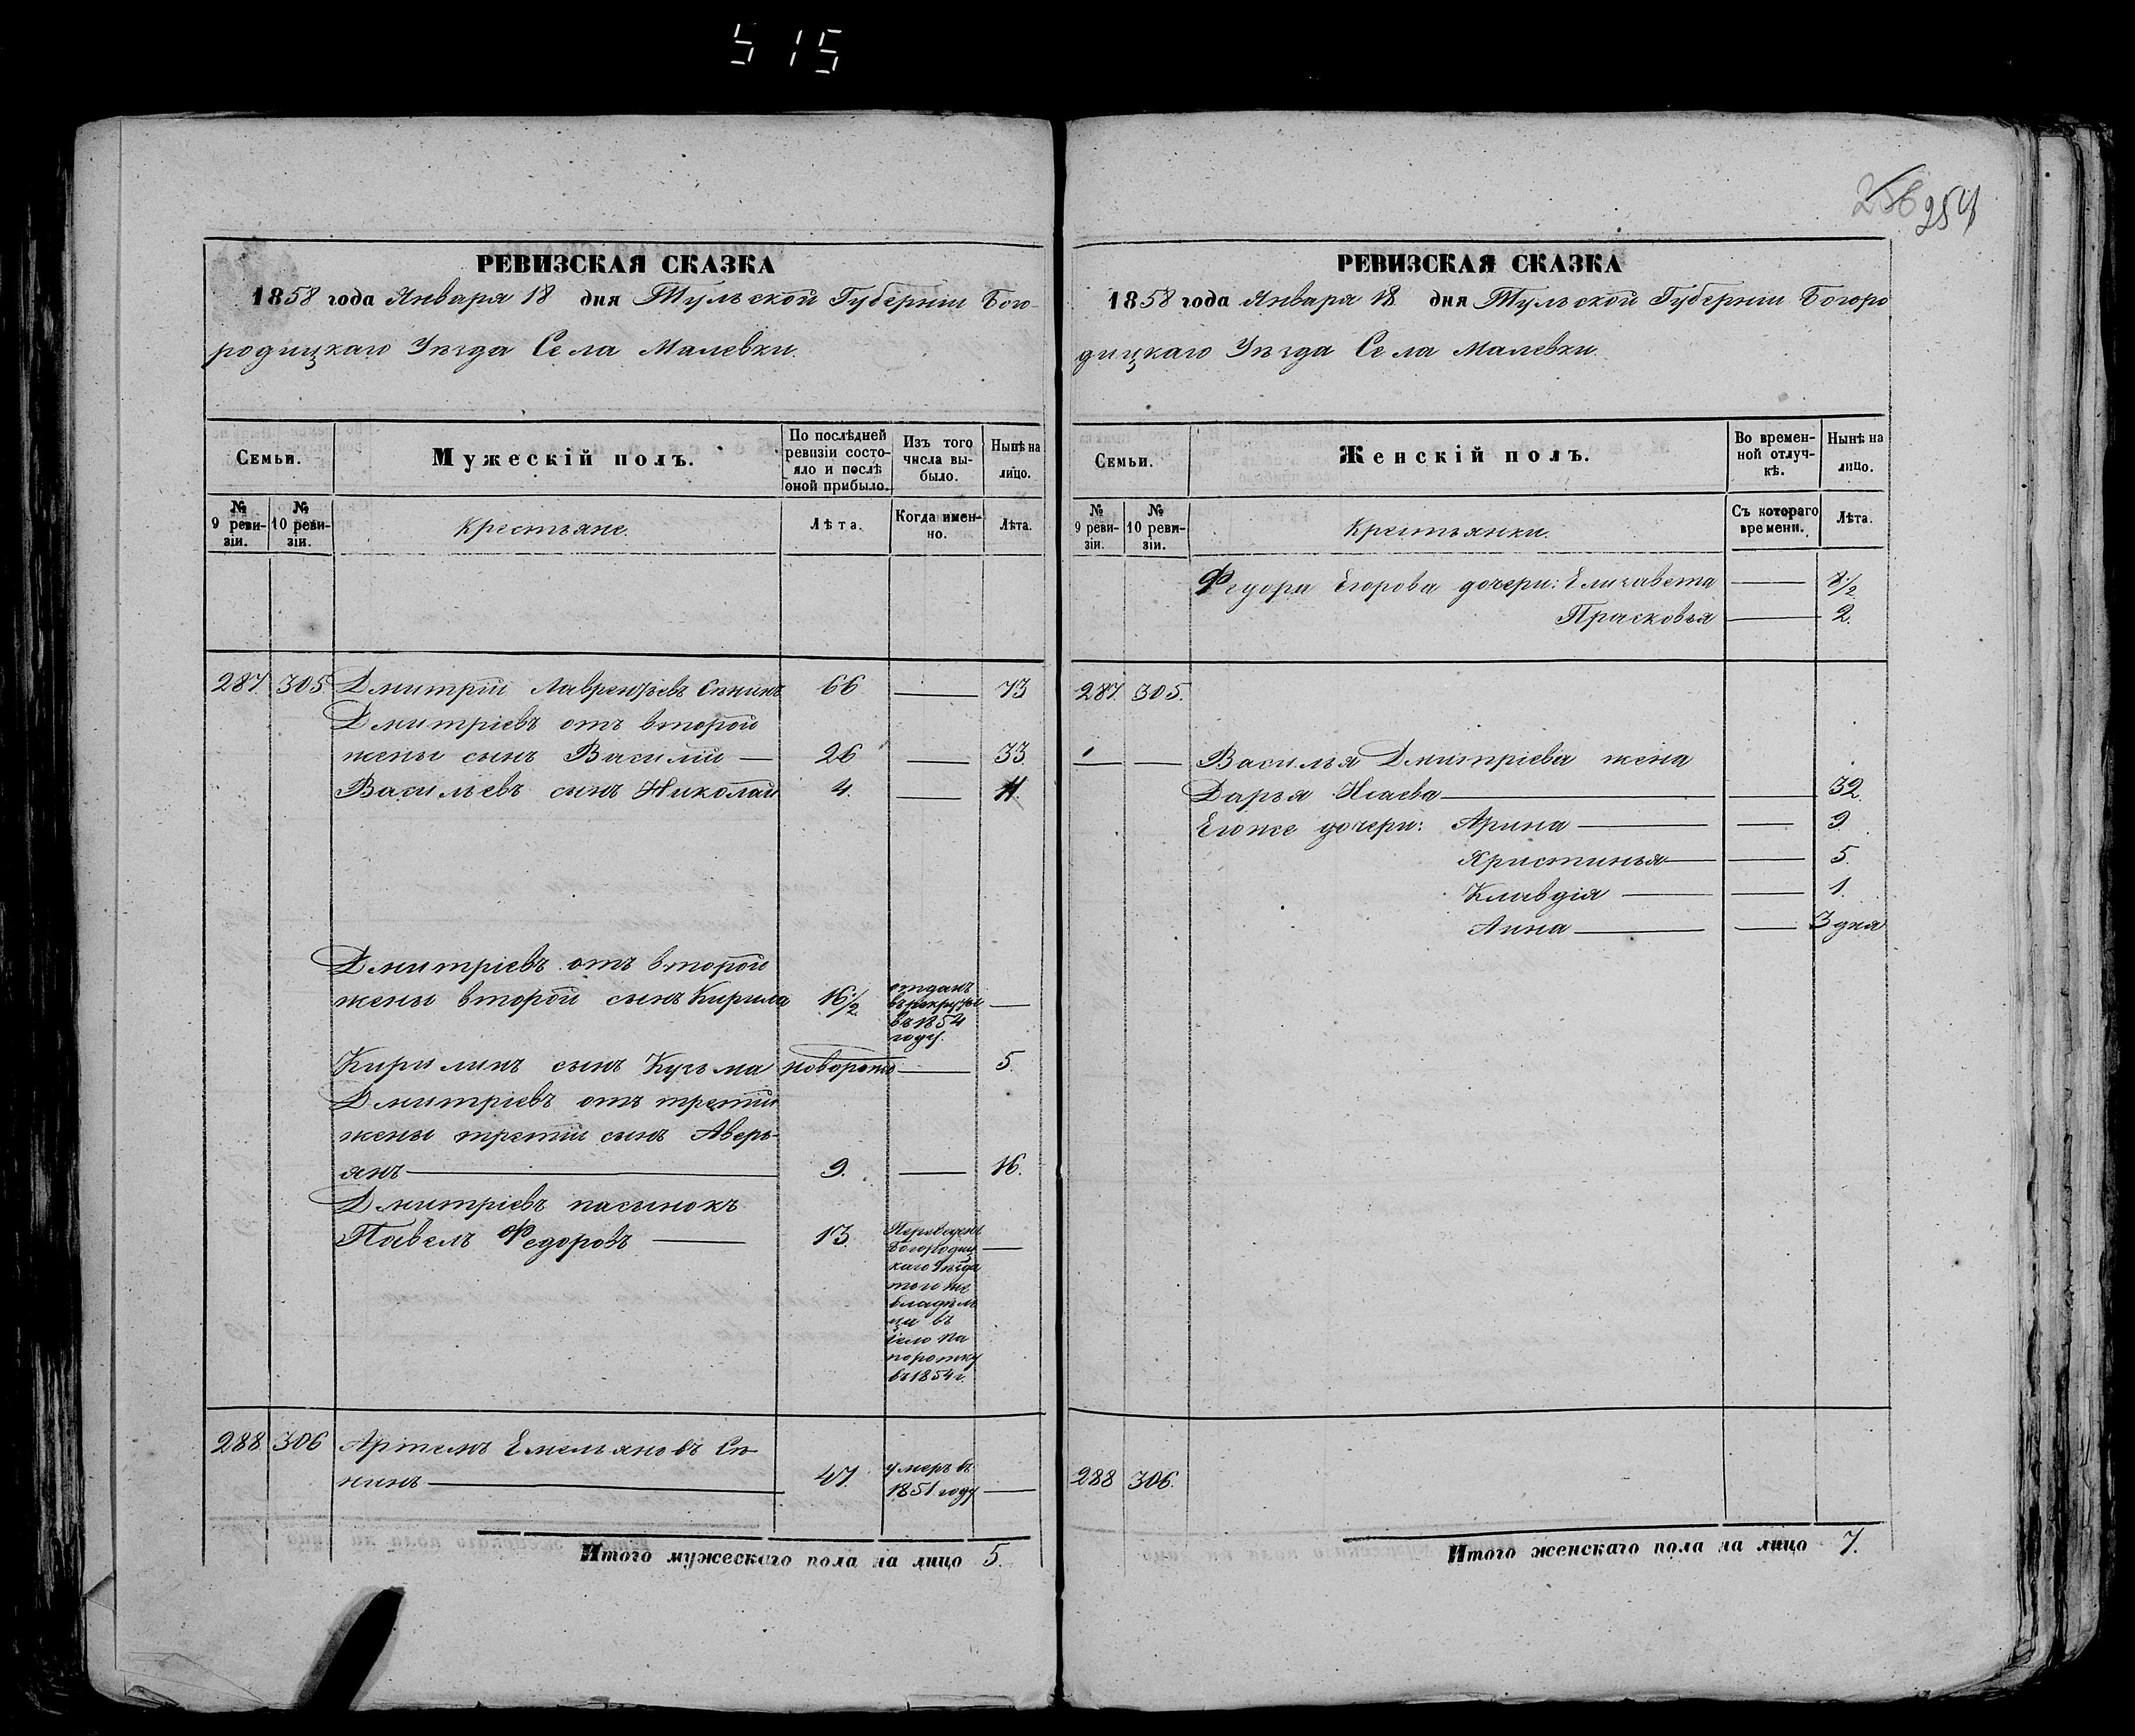 515
256 254
РЕВИЗСКАЯ СКАЗКА
1858 года Января 18 дня Тульской Губерніи Бого-
родицкаго Уѣзда Села Малевки.
Семьи.
Мужескій полъ.
По послѣдней ревизіи состо-яло и послѣ оной прибыло.
Изъ того числа вы-было.
Нынѣ на лицо.
№ 9 реви-зіи.
№ 10 реви-зіи.
Крестьяне.
Лѣта.
Когда имен-но.
Лѣта.
287. 305 Дмитрій Лаврентьевъ Сѣнинъ 66 — 73
Дмитріевъ отъ второй
жены сынъ Василій — 26 — 33.
Васильевъ сынъ Николай 4. — 11.
Дмитріевъ отъ второй
жены второй сынъ Кирила 16 1/2 отданъ —
въ рекруты
въ 1854
году.
Кирилинъ сынъ Кузьма новорожд — 5.
Дмитріевъ отъ третій
жены третій сынъ Аверь-
янъ — 9. — 16.
Дмитріевъ пасынокъ
Павелъ Федоровъ — 13. Переведенъ —
Богородиц
каго Уѣзда
того же
владѣль
ца въ
село Па
портку
въ 1854 г.
288 306 Артемъ Емельяновъ Сѣ-
нинъ — 47. умеръ въ
1851 году —
Итого мужескаго пола на лицо 5.
РЕВИЗСКАЯ СКАЗКА
1858 года Января 18 дня Тульской Губерніи Богоро
дицкаго Уѣзда Села Малевки.
Семьи.
Женскій полъ.
Во времен-ной отлуч-кѣ.
Нынѣ на лицо.
№ 9 реви-зіи.
№ 10 реви-зіи.
Крестьянки.
Съ котораго времени.
Лѣта.
Федора Егорова дочери: Елизавета — 8 1/2
Прасковья — 2.
287. 305.
— — Василья Дмитріева жена
Дарья Исаева — — 32.
Егоже дочери: Арина — — 9.
Христинья — — 5.
Клавдія — — 1.
Анна — — 3 дня
288 306.
Итого женскаго пола на лицо 7.